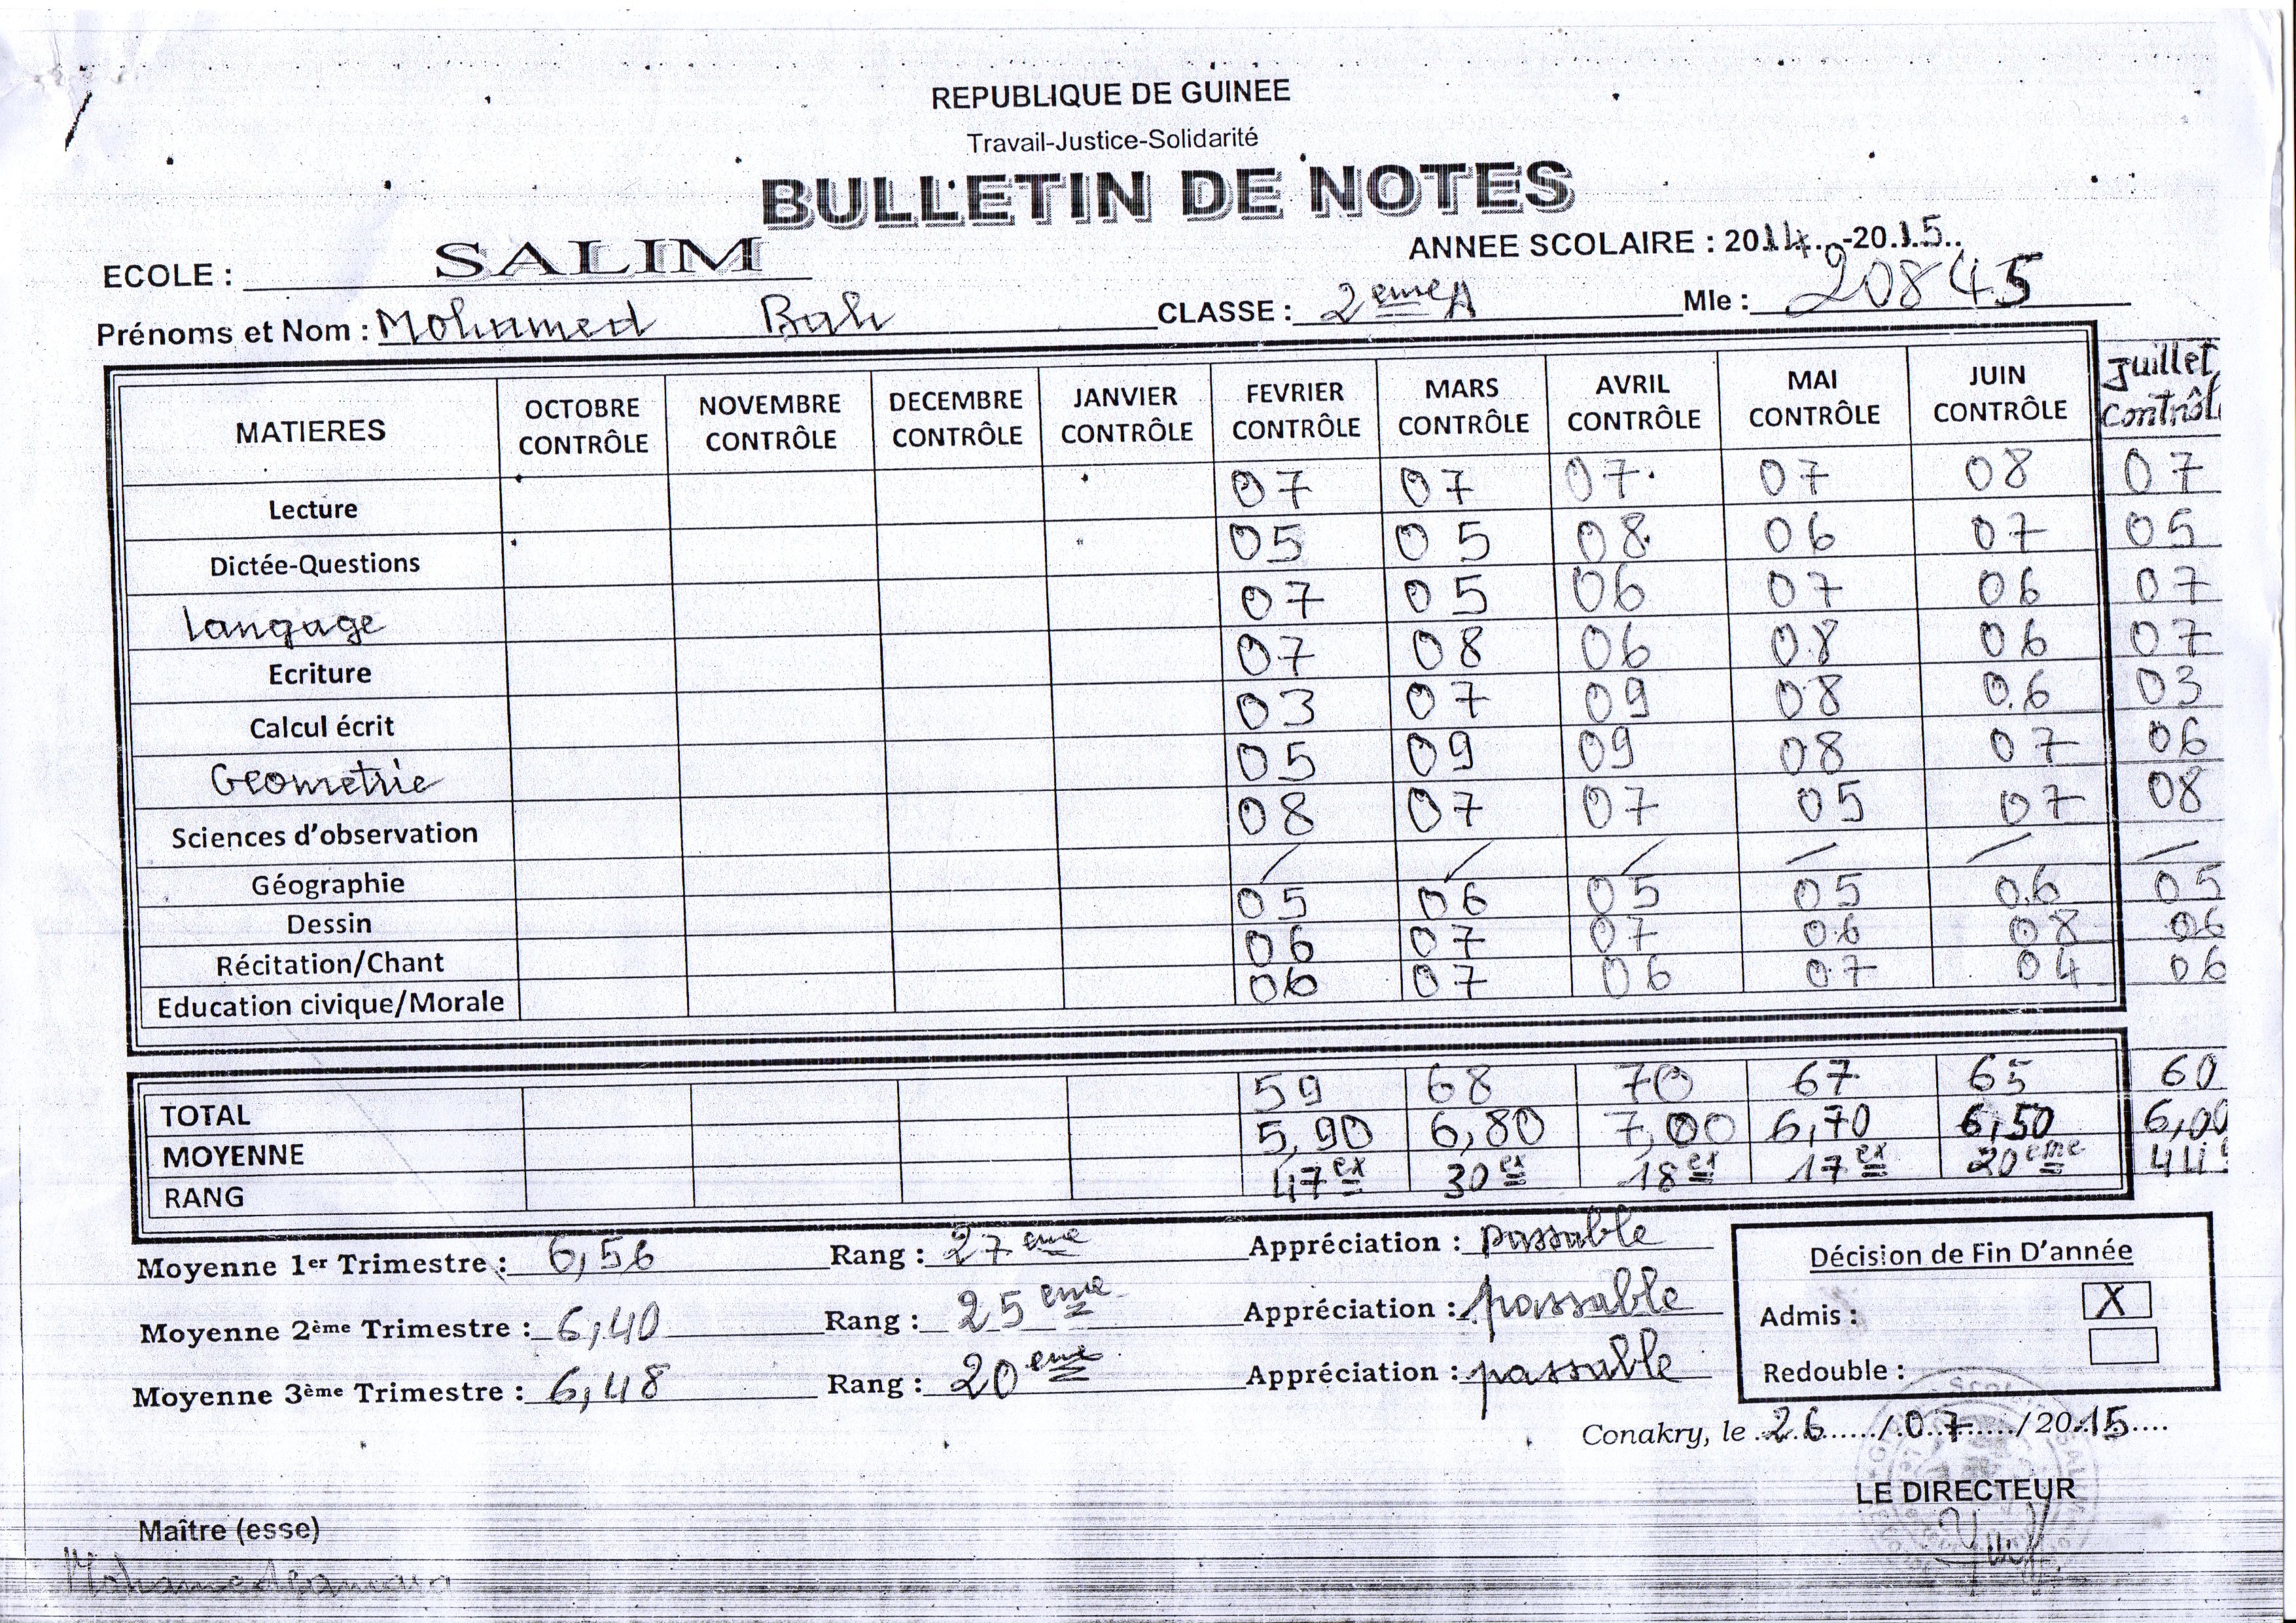 REPUBLIQUE DE GUINEE
Travail-Justice-Solidarité
BULLETIN DE NOTES
ECOLE : SALIM ANNEE SCOLAIRE : 2014..-20.15..
Prénoms et Nom : Mohamed Bah CLASSE : 2eme A Mle : 20845
MATIERES OCTOBRE CONTRÔLE NOVEMBRE CONTRÔLE DECEMBRE CONTRÔLE JANVIER CONTRÔLE FEVRIER CONTRÔLE MARS CONTRÔLE AVRIL CONTRÔLE MAI CONTRÔLE JUIN CONTRÔLE Juillet contrôl
Lecture 07 07 07 07 08 07
Dictée-Questions 05 05 08 06 07 05
Langage 07 05 06 07 06 07
Ecriture 07 08 06 08 06 07
Calcul écrit 03 07 09 08 06 03
Geometrie 05 09 09 08 07 06
Sciences d'observation 08 07 07 05 07 08
Géographie / / / / / /
Dessin 05 06 05 05 06 05
Récitation/Chant 06 07 07 06 08 06
Education civique/Morale 06 07 06 07 04 06
TOTAL 59 68 70 67 65 60
MOYENNE 5,90 6,80 7,00 6,70 6,50 6,00
RANG 47ex 30ex 18ex 17ex 20eme
Moyenne 1er Trimestre : 6,56 Rang : 27eme Appréciation : passable
Moyenne 2ème Trimestre : 6,40 Rang : 25eme Appréciation : passable
Moyenne 3ème Trimestre : 6,48 Rang : 20eme Appréciation : passable
Décision de Fin D'année
Admis : X
Redouble :
Conakry, le 26/07/2015
LE DIRECTEUR
Maître (esse)
Mohamed